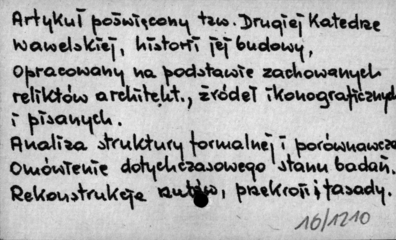 Artykuł poświęcony tzw. Drugiej Katedrze
wawelskiej, historii jej budowy,
opracowany na podstawie zachowanych
reliktów architekt., źródeł ikonograficznych
i pisanych.
Analiza struktury formalnej i porównawcza
Omówienie dotychczasowego stanu badań.
Rekonstrukcja rzutów, przekroi i fasady.
16/1210